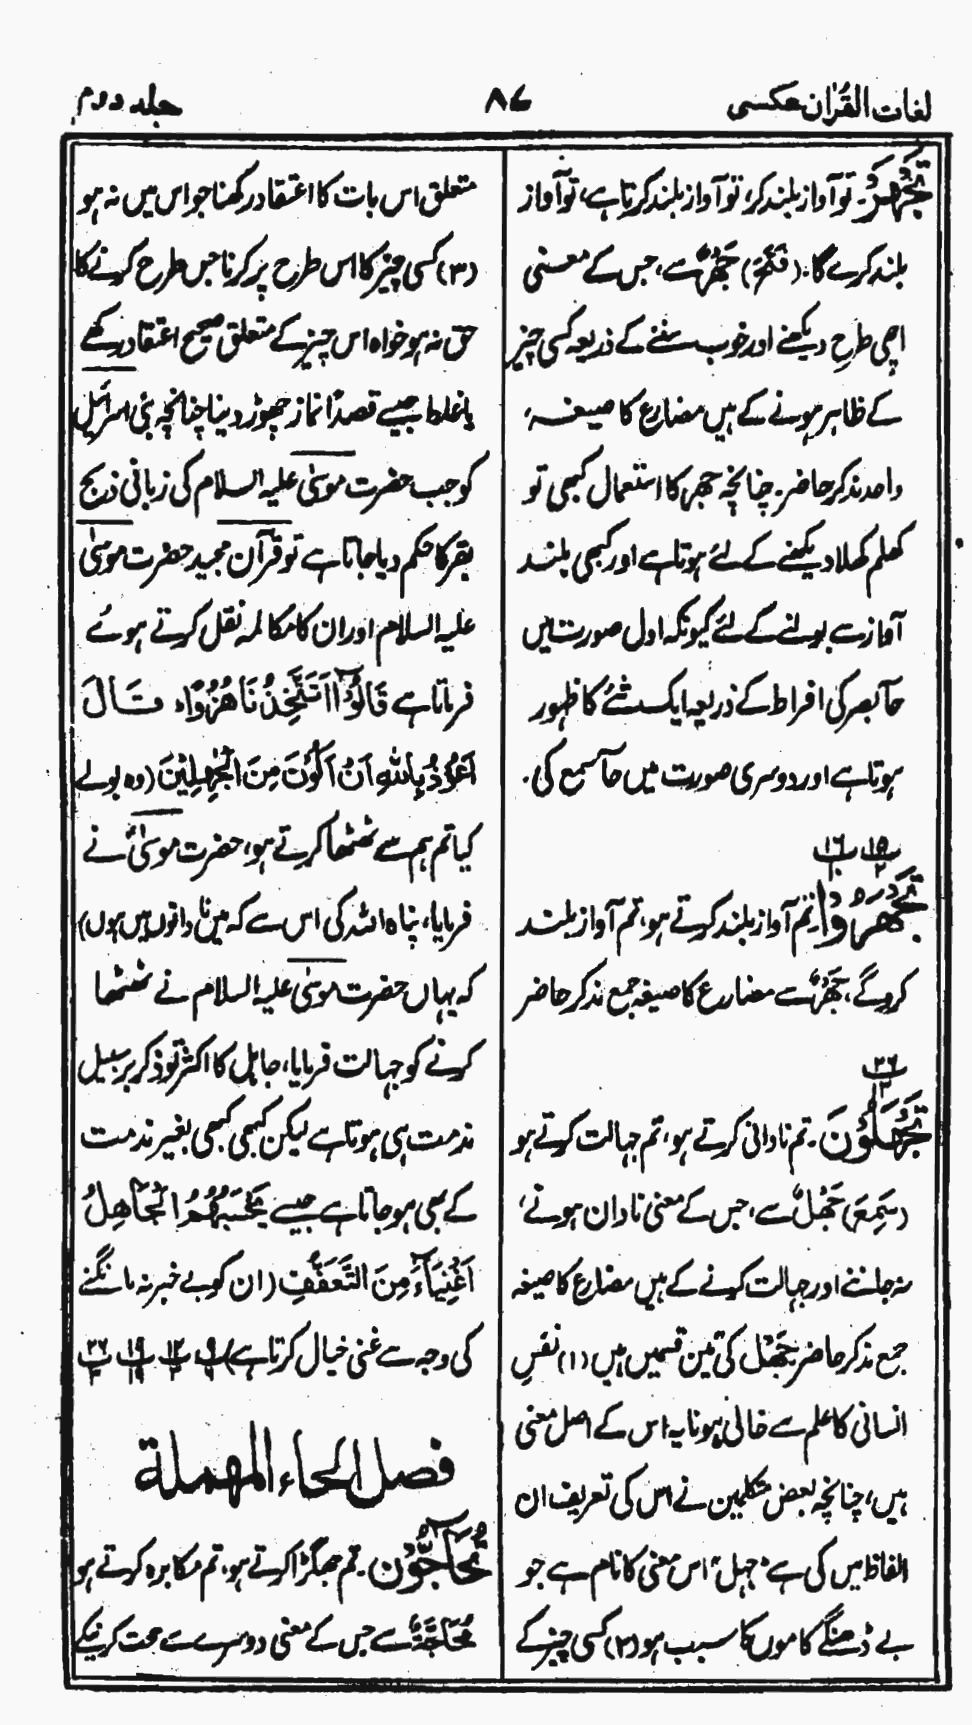 لغات القرآن عکسی
۸۷
جلد دوم
تَجْهَرْ۔ تو آواز بلند کر، تو آواز بلند کرتا ہے، تو آواز
بلند کرے گا۔ (فَتَحَ) جَهْرٌ سے، جس کے معنی
اچھی طرح دیکھنے اور خوب سننے کے ذریعہ کسی چیز
کے ظاہر ہونے کے ہیں مضارع کا صیغہ،
واحد مذکر حاضر۔ چنانچہ جہر کا استعمال کبھی تو
کھلم کھلا دیکھنے کے لئے ہوتا ہے اور کبھی بلند
آواز سے بولنے کے لئے کیونکہ اول صورت میں
حاسۂ بصر کی افراط کے ذریعہ ایک شئے کا ظہور
ہوتا ہے اور دوسری صورت میں حاسۂ سمع کی۔
۱۵ ۱۶
تَجْهَرُوْا۔ تم آواز بلند کرتے ہو، تم آواز بلند
کرو گے، جَهْرٌ سے مضارع کا صیغہ جمع مذکر حاضر
۲۶
تَجْهَلُوْنَ۔ تم نادانی کرتے ہو، تم جہالت کرتے ہو
(سَمِعَ) جَهْلٌ سے، جس کے معنی نادان ہونے،
نہ جاننے اور جہالت کرنے کے ہیں مضارع کا صیغہ
جمع مذکر حاضر جَهْل کی تین قسمیں ہیں (۱) نفسِ
انسانی کا علم سے خالی ہونا یہ اس کے اصل معنی
ہیں، چنانچہ بعض متکلمین نے اس کی تعریف ان
الفاظ میں کی ہے "جہل" اس معنی کا نام ہے جو
بے ڈھنگے کاموں کا سبب ہو (۲) کسی چیز کے
متعلق اس بات کا اعتقاد رکھنا جو اس میں نہ ہو
(۳) کسی چیز کا اس طرح پر کرنا جس طرح کرنے کا
حق نہ ہو خواہ اس چیز کے متعلق صحیح اعتقاد رکھے
یا غلط جیسے قصدًا نماز چھوڑ دینا چنانچہ بنی اسرائیل
کو جب حضرت موسیٰ علیہ السلام کی زبانی ذبح
بقر کا حکم دیا جاتا ہے تو قرآن مجید حضرت موسیٰ
علیہ السلام اور ان کا مکالمہ نقل کرتے ہوئے
فرماتا ہے قَالُوْٓا اَتَتَّخِذُنَا هُزُوًا، قَالَ
اَعُوْذُ بِاللهِ اَنْ اَكُوْنَ مِنَ الْجٰهِلِيْنَ (وہ بولے
کیا تم ہم سے ٹھٹھا کرتے ہو، حضرت موسیٰؑ نے
فرمایا، پناہ اللہ کی اس سے کہ میں نادانوں میں ہوں)
کہ یہاں حضرت موسیٰ علیہ السلام نے ٹھٹھا
کرنے کو جہالت فرمایا، جاہل کا اکثر تو ذکر بر سبیل
مذمت ہی ہوتا ہے لیکن کبھی کبھی بغیر مذمت
کے بھی ہو جاتا ہے جیسے يَحْسَبُهُمُ الْجَاهِلُ
اَغْنِيَآءَ مِنَ التَّعَفُّفِ (ان کو بے خبر نہ مانگنے
کی وجہ سے غنی خیال کرتا ہے) ۹ ۱۲ ۱۹ ۲۶
فصل الحاء المهملة
تُحَآجُّوْنِ۔ تم جھگڑا کرتے ہو، تم مکابرہ کرتے ہو
مُحَاجَّةٌ سے جس کے معنی دوسرے سے حجت کرنیکے